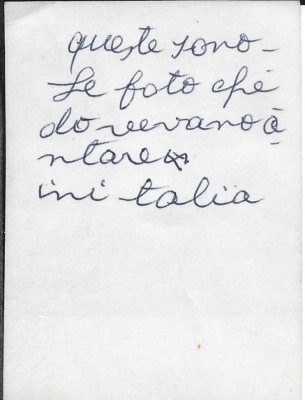 queste sono -
Le foto che
dovevano à
ntare
in i talia